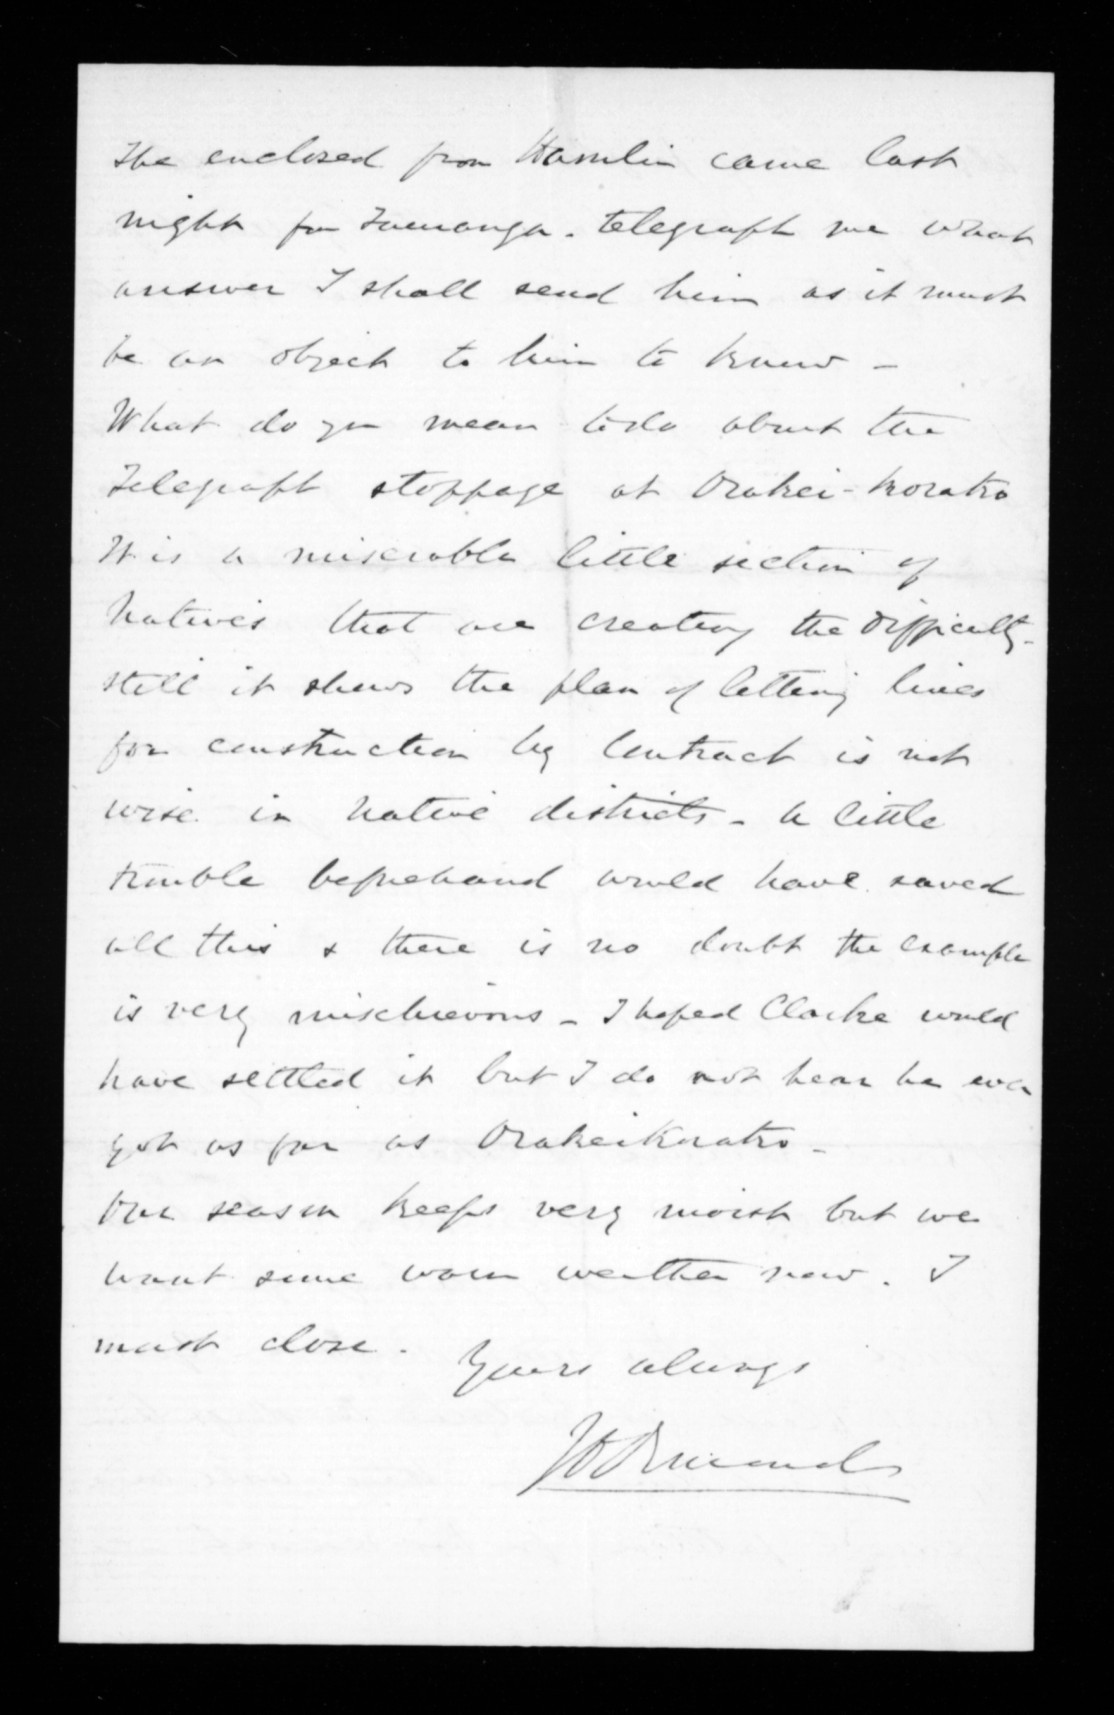 The enclosed from Hamlin came last
night from Tauranga. telegraph me what
answer I shall send him as it must
be an object to him to know –
What do you mean to do about the
Telegraph stoppage at Orakei-Korako
It is a miserable little section of
Natives that are creating the difficulty –
still it shews the plan of letting lines
for construction by Contract is not
wise in Native districts – a little
trouble beforehand would have saved
all this & there is no doubt the example
is very mischievous – I hoped Clarke would
have settled it but I do not hear he ever
got as far as Orakeikorako –
Our season keeps very moist but we
want some warm weather now. I
must close.
Yours always
JD Ormond